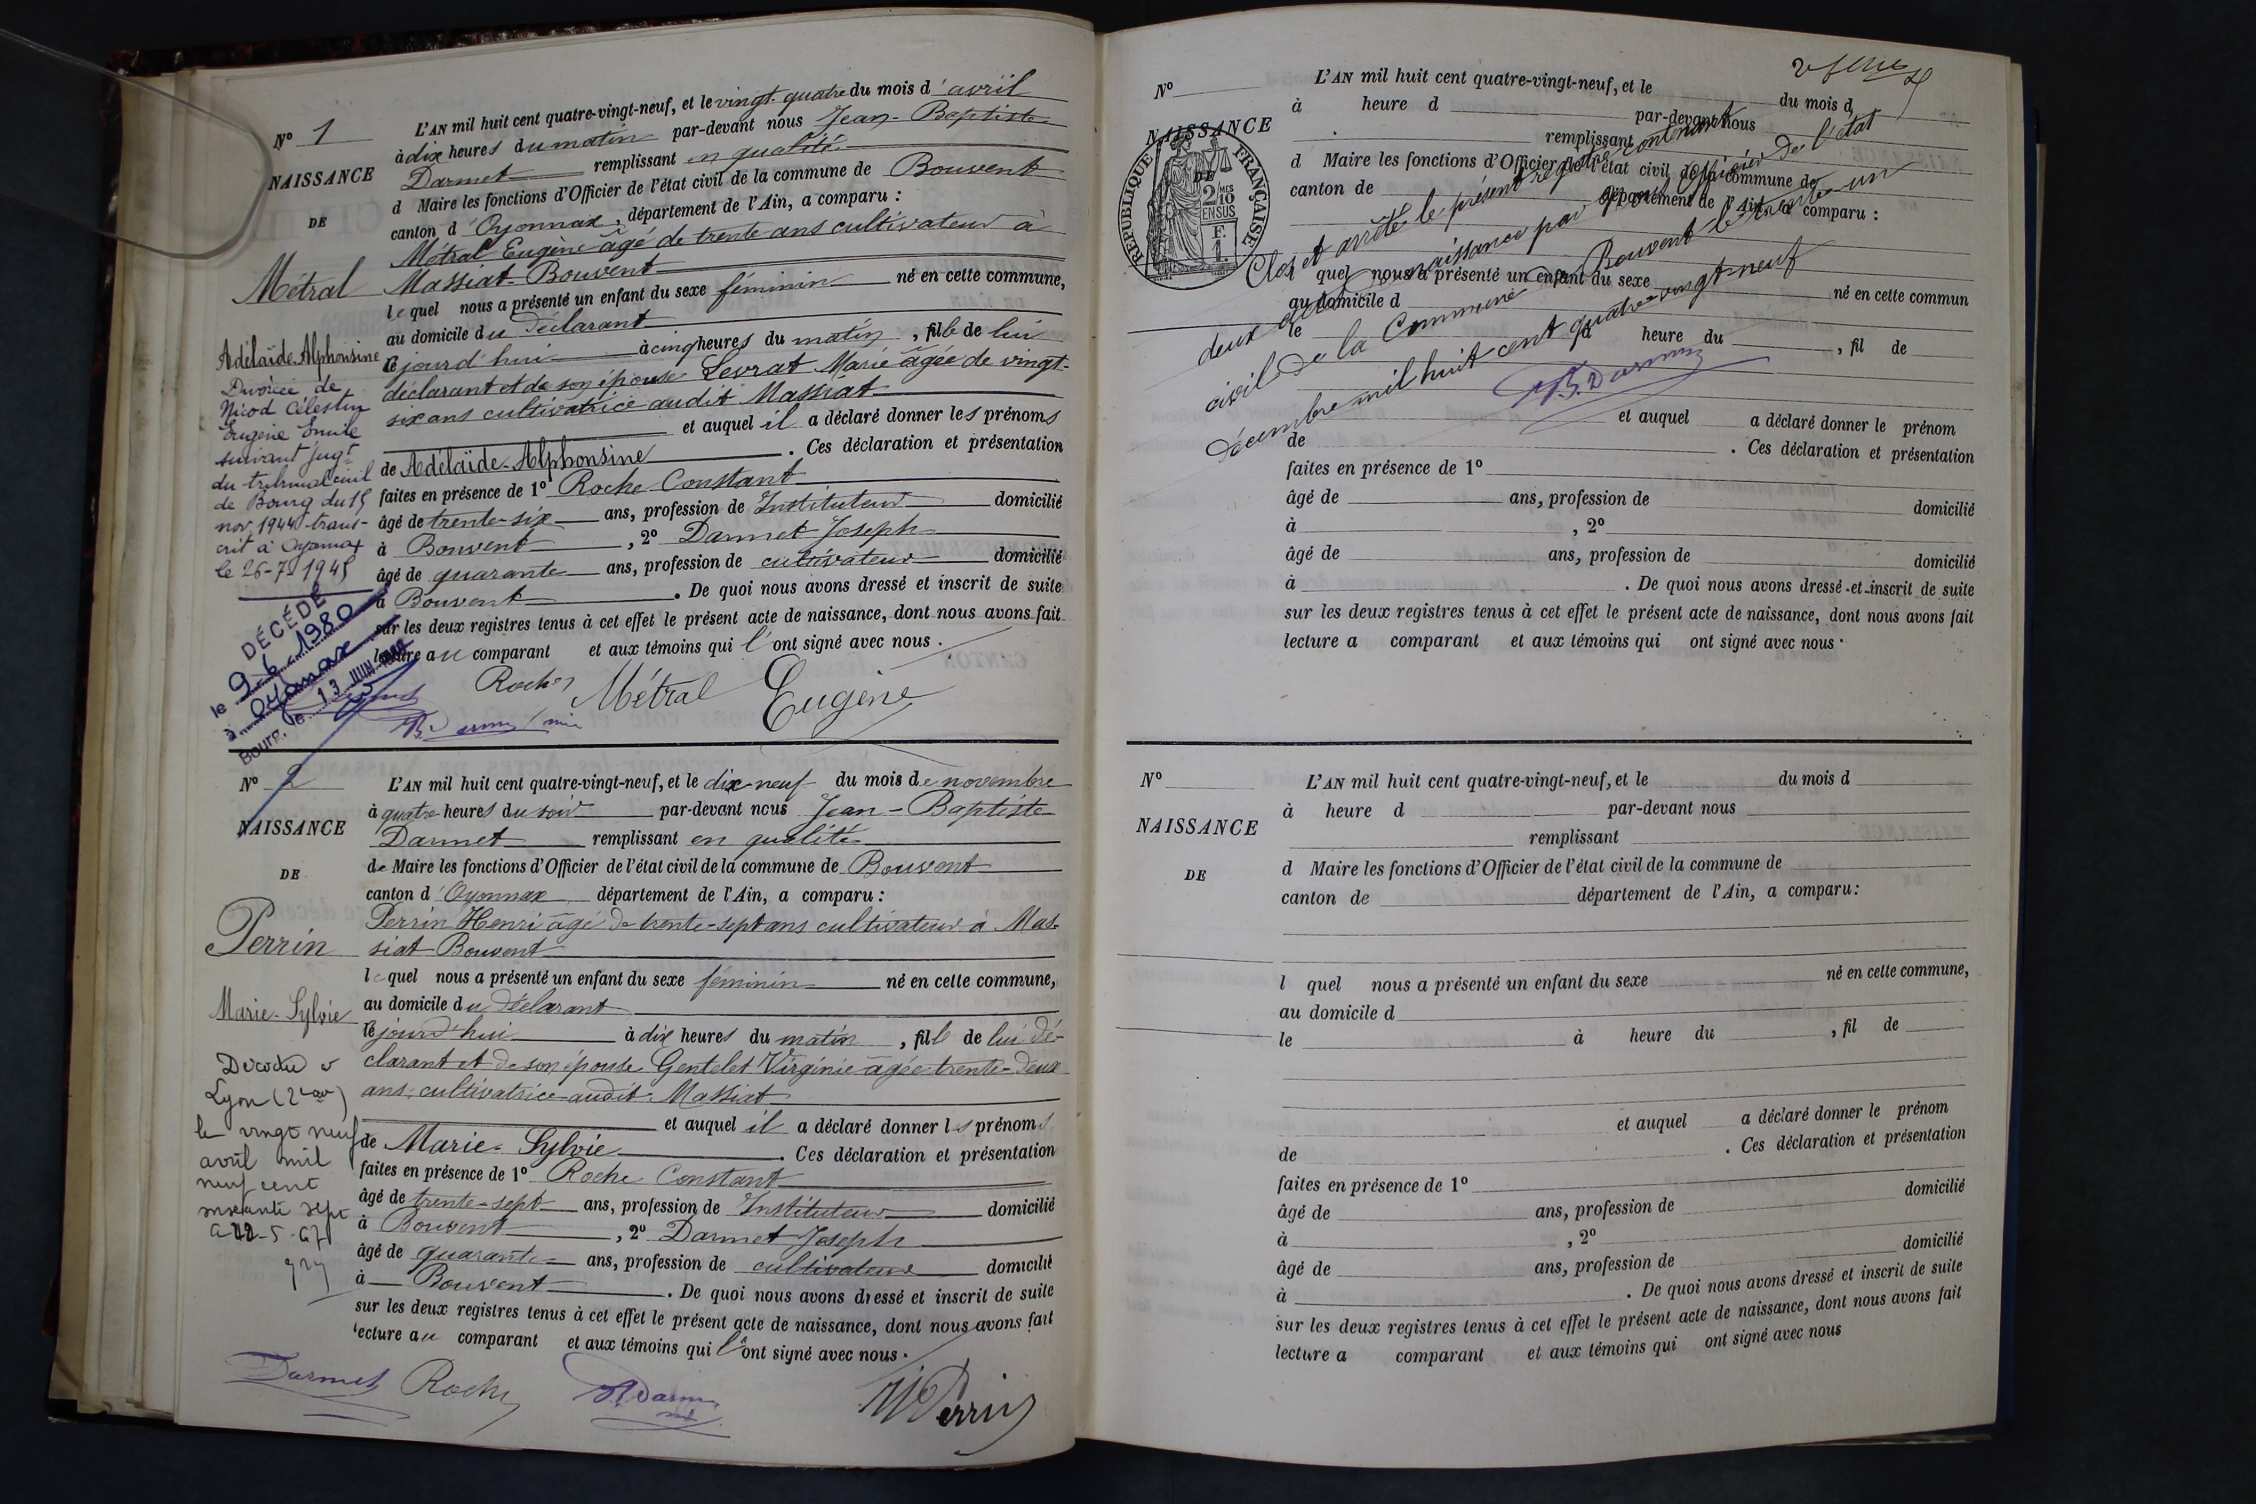 N° 1
NAISSANCE
DE
Métral
Adélaïde-Alphonsine
Divorcée de
Nicod Célestin
Eugène Emile
suivant jugt
du tribunal civil
de Bourg du 15
nov. 1944 trans-
crit à Oyonnax
le 26-7-1945
DÉCÉDÉ
le 9-6-1980
à Oyonnax
Bourg, le 13 JUIN 1980
L'AN mil huit cent quatre-vingt-neuf, et le vingt-quatre du mois d'avril
à dix heures du matin par-devant nous Jean-Baptiste
Darmet remplissant en qualité
d Maire les fonctions d'Officier de l'état civil de la commune de Bouvent
canton d'Oyonnax, département de l'Ain, a comparu :
Métral Eugène âgé de trente ans cultivateur à
Massiat-Bouvent
lequel nous a présenté un enfant du sexe féminin né en cette commune,
au domicile du déclarant
le jourd'hui à cinq heures du matin, fille de lui
déclarant et de son épouse Levrat Marie âgée de vingt-
six ans cultivatrice audit Massiat
et auquel il a déclaré donner les prénoms
de Adélaïde-Alphonsine. Ces déclaration et présentation
faites en présence de 1° Roche Constant
âgé de trente-six ans, profession de Instituteur domicilié
à Bouvent, 2° Darmet Joseph
âgé de quarante ans, profession de cultivateur domicilié
à Bouvent. De quoi nous avons dressé et inscrit de suite
sur les deux registres tenus à cet effet le présent acte de naissance, dont nous avons fait
lecture au comparant et aux témoins qui l'ont signé avec nous.
Roche Métral Eugène
N° 2
NAISSANCE
DE
Perrin
Marie-Sylvie
Décédée à
Lyon (2e)
le vingt neuf
avril mil
neuf cent
soixante sept
L'AN mil huit cent quatre-vingt-neuf, et le dix-neuf du mois de novembre
à quatre heures du soir par-devant nous Jean-Baptiste
Darmet remplissant en qualité
de Maire les fonctions d'Officier de l'état civil de la commune de Bouvent
canton d'Oyonnax département de l'Ain, a comparu :
Perrin Henri âgé de trente-sept ans cultivateur à Mas-
siat-Bouvent
lequel nous a présenté un enfant du sexe féminin né en cette commune,
au domicile du déclarant
le jourd'hui à dix heures du matin, fille de lui dé-
clarant et de son épouse Gentelet Virginie âgée trente-deux
ans, cultivatrice audit Massiat
et auquel il a déclaré donner les prénoms
de Marie-Sylvie. Ces déclaration et présentation
faites en présence de 1° Roche Constant
âgé de trente-sept ans, profession de Instituteur domicilié
à Bouvent, 2° Darmet Joseph
âgé de quarante ans, profession de cultivateur domicilié
à Bouvent. De quoi nous avons dressé et inscrit de suite
sur les deux registres tenus à cet effet le présent acte de naissance, dont nous avons fait
lecture au comparant et aux témoins qui l'ont signé avec nous.
Darmet Roche Perrin
N°
NAISSANCE
RÉPUBLIQUE FRANÇAISE
2/10 MES
EN SUS
F.
1.
L'AN mil huit cent quatre-vingt-neuf, et le du mois d
à heure d par-devant nous
remplissant
d Maire les fonctions d'Officier de l'état civil de la commune de
canton de département de l'Ain, a comparu :
l quel nous a présenté un enfant du sexe né en cette commun
au domicile d
le à heure du, fil de
et auquel a déclaré donner le prénom
de. Ces déclaration et présentation
faites en présence de 1°
âgé de ans, profession de domicilié
à, 2°
âgé de ans, profession de domicilié
à. De quoi nous avons dressé et inscrit de suite
sur les deux registres tenus à cet effet le présent acte de naissance, dont nous avons fait
lecture a comparant et aux témoins qui ont signé avec nous.
Clos et arrêté le présent registre contenant
deux actes de naissance par nous officier de l'état
civil de la Commune de Bouvent le trente-un
décembre mil huit cent quatre-vingt-neuf
N°
NAISSANCE
DE
L'AN mil huit cent quatre-vingt-neuf, et le du mois d
à heure d par-devant nous
remplissant
d Maire les fonctions d'Officier de l'état civil de la commune de
canton de département de l'Ain, a comparu :
l quel nous a présenté un enfant du sexe né en cette commune,
au domicile d
le à heure du, fil de
et auquel a déclaré donner le prénom
de. Ces déclaration et présentation
faites en présence de 1°
âgé de ans, profession de domicilié
à, 2°
âgé de ans, profession de domicilié
à. De quoi nous avons dressé et inscrit de suite
sur les deux registres tenus à cet effet le présent acte de naissance, dont nous avons fait
lecture a comparant et aux témoins qui ont signé avec nous